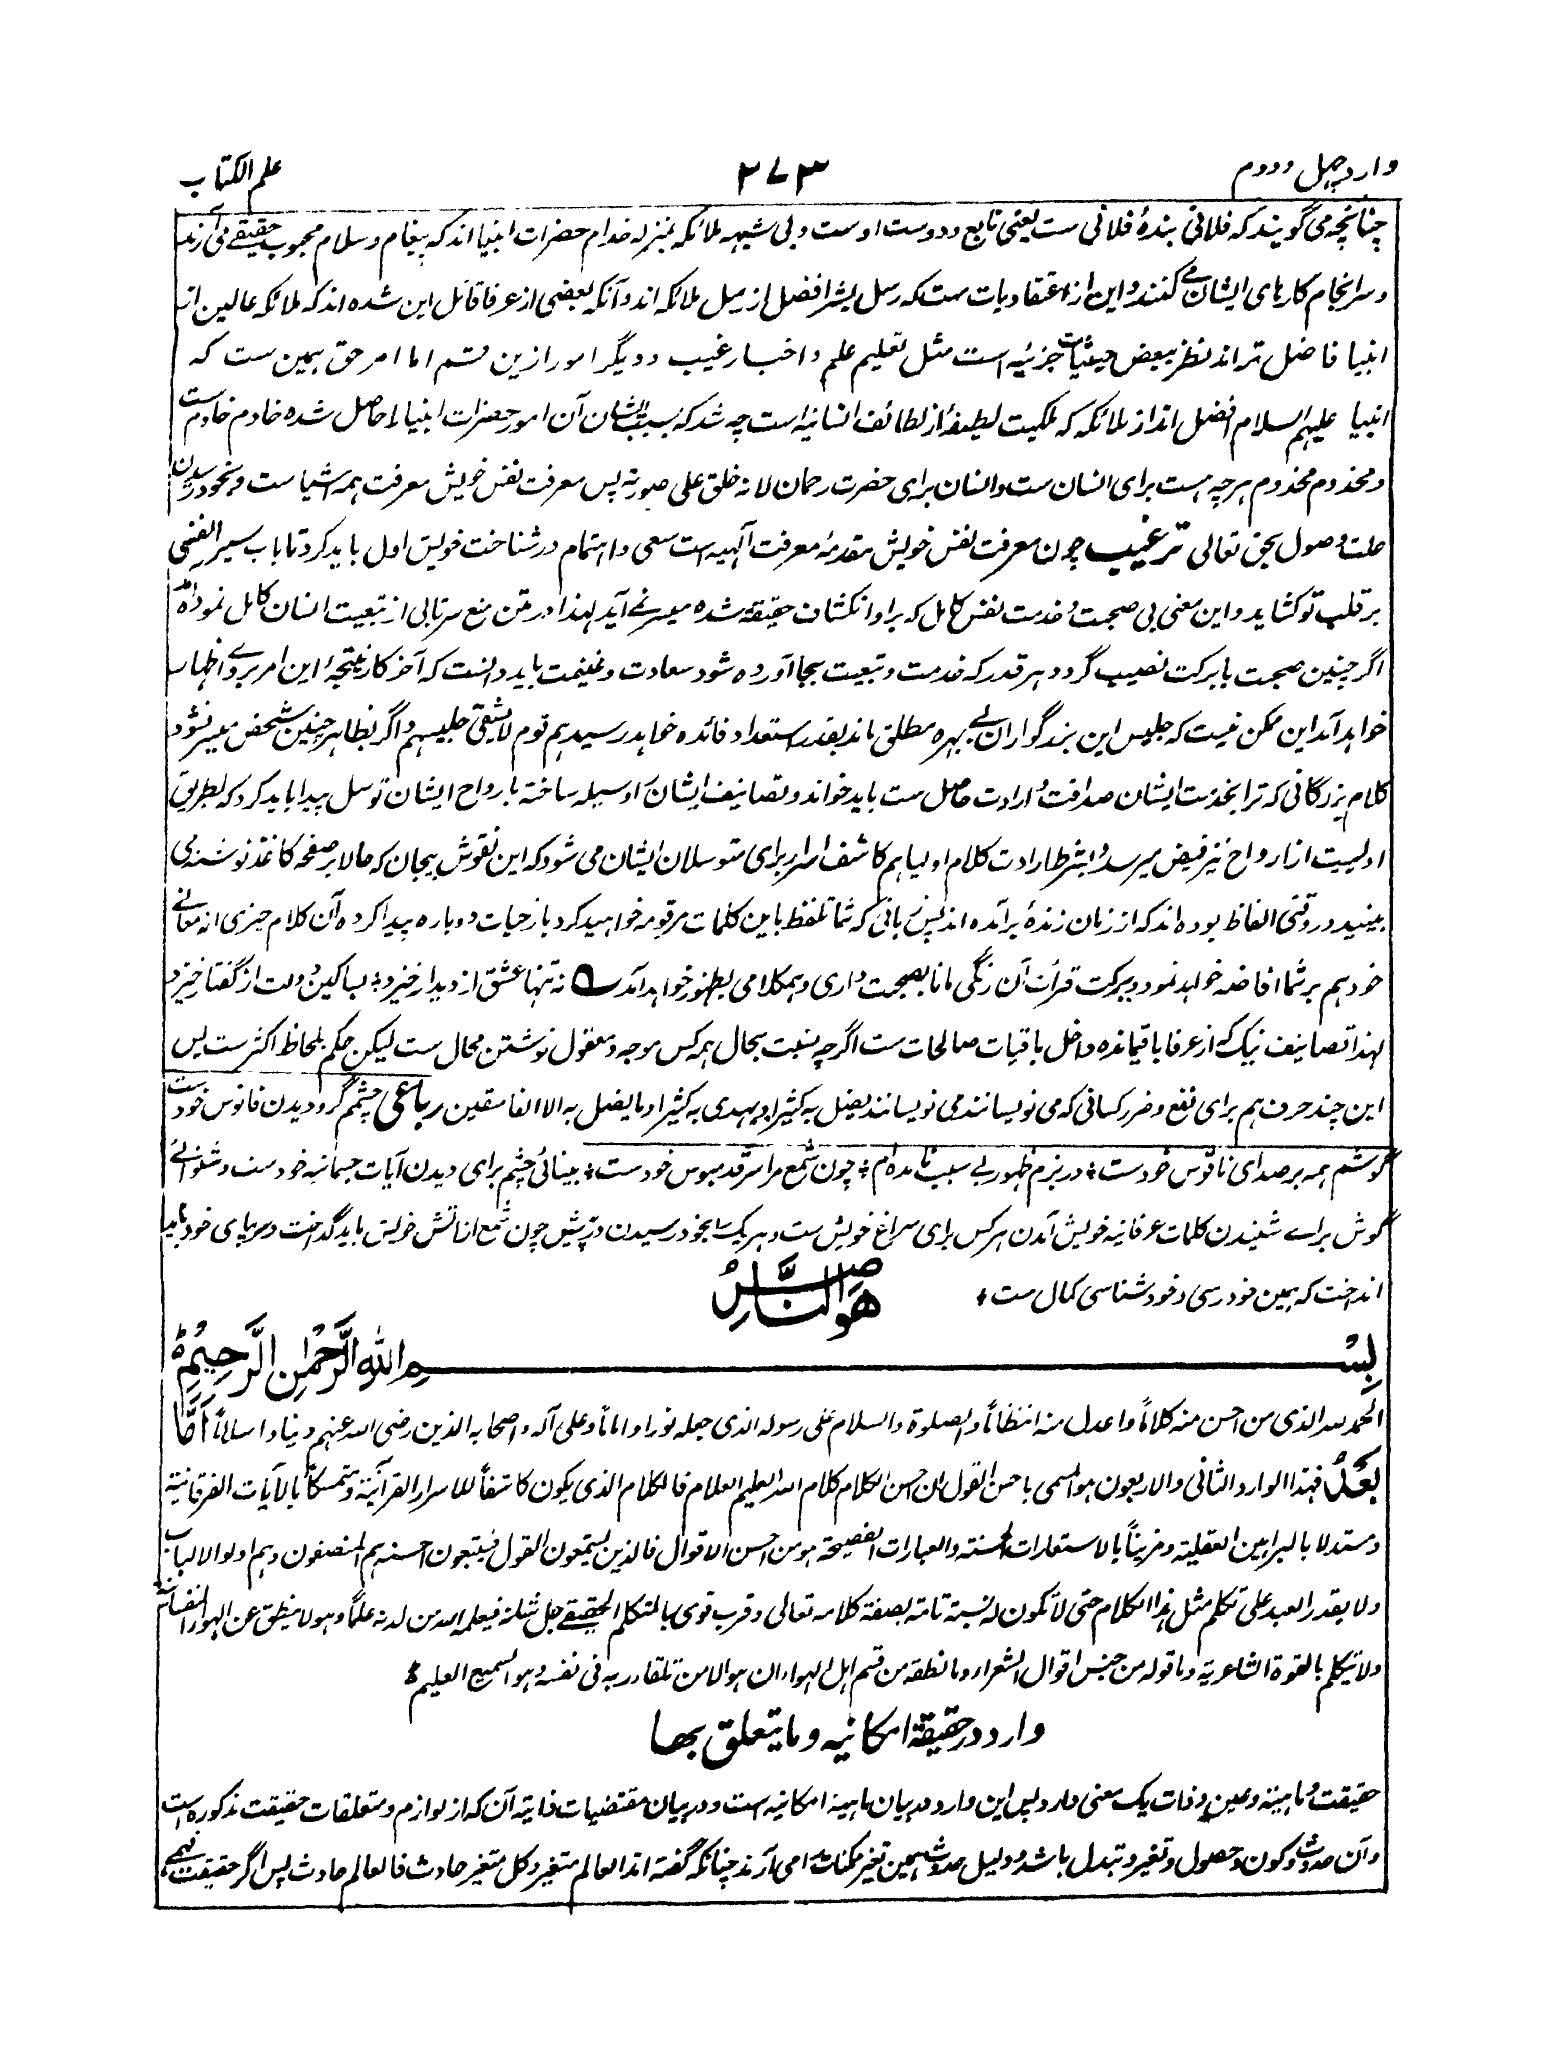 وارد چهل و دوم
۲۷۳
علم الکتاب
چنانچه می گویند که فلانی بندهٔ فلانی ست یعنی تابع و دوست اوست و بی شبهه ملائکه بمنزله خدام حضرات انبیا اند که پیغام و سلام محبوب حقیقے می آرند
و سرانجام کارهای ایشان می کنند و این از اعتقادیات ست که رسل بشر افضل از رسل ملائکه اند و آنکه بعضی از عرفا قائل این شده اند که ملائکه عالین از
انبیا فاضل تر اند نظر ببعض حیثیات جزئیه است مثل تعلیم علم و اخبار غیب و دیگر امور ازین قسم اما امر حق همین ست که
انبیا علیهم السلام افضل اند از ملائکه که ملکیت لطیفهٔ از لطائف انسانیه است چه شد که بسبب ایشان آن امور حضرات انبیا را حاصل شده خادم خادم ست
و مخدوم مخدوم هرچه هست برای انسان ست و انسان برای حضرت رحمان لانه خلق علی صورته پس معرفت نفس خویش معرفت همه اشیا ست و بخود رسیدن
علت وصول بحق تعالی ترغیب چون معرفت نفس خویش مقدمهٔ معرفت آلهیه است سعی و اهتمام در شناخت خویش اول باید کرد تا باب سیر انفسی
بر قلب تو کشاید و این معنی بی صحبت و خدمت نفس کامل که بر او انکشاف حقیقة شده میسر نمے آید لهذا در متن منع سرتابی از تبعیت انسان کامل نموده آمد
اگر چنین صحبت با برکت نصیب گردد هر قدر که خدمت و تبعیت بجا آورده شود سعادت و غنیمت باید دانست که آخر کار نتیجهٔ این امر بروے اظهار
خواهد آمد این ممکن نیست که جلیس این بزرگواران بے بهره مطلق ماند بقدر استعداد فائده خواهد رسید هم قوم لا یشقی جلیسهم و اگر بظاهر چنین شخص میسر نشود
کلام بزرگانی که ترا بخدمت ایشان صداقت و ارادت حاصل ست باید خواند و تصانیف ایشان را وسیله ساخته بارواح ایشان توسل پیدا باید کرد که بطریق
اویسیت از ارواح نیز فیض میرسد و بشرط ارادت کلام اولیا هم کاشف اسرار برای متوسلان ایشان می شود که این نقوش بیجان که حالا بر صفحه کاغذ نوشته می
بینید در وقتی الفاظ بوده اند که از زبان زندهٔ برآمده اند پس زبانی که شما تلفظ باین کلمات مرقومه خواهید کرد باز حیات دوباره پیدا کرده آن کلام چیزی از معانے
خود هم بر شما افاضه خواهد نمود و ببرکت قرأت آن رنگی مانا بصحبت داری و همکلامی بظهور خواهد آمد ؎ نه تنها عشق از دیدار خیزد ٭ بسا کین دولت از گفتار خیزد
لهذا تصانیف نیک که از عرفا باقیمانده داخل باقیات صالحات ست اگرچه بنسبت بحال همه کس موجه و معقول نوشتن محال ست لیکن حکم بلحاظ اکثر ست پس
این چند حرف هم برای نفع و ضرر کسانی که می نویسانند می نویسانند یضل به کثیرا و یهدی به کثیرا و ما یضل به الا الفاسقین رباعی چشمم گرو دیدن فانوس خود ست
گوشم همه بر صدای ناقوس خودست ٭ در بزم ظهور بے سبب نامده ام ٭ چون شمع مرا سر قدمبوس خودست ٭ بینائی چشم برای دیدن آیات جسمانیه خودست و شنوائے
گوش براے شنیدن کلمات عرفانیه خویش آمدن هرکس برای سراغ خویش ست و هر یک را بخود رسیدن در پیش چون شمع از آتش خویش باید گداخت و سر بپای خود باید
انداخت که همین خود رسی و خود شناسی کمال ست ٭
هو الناصر
بسم الله الرحمن الرحیم
الحمد لله الذی من احسن منه کلاماً و اعدل منه انتظاماً و الصلوة والسلام علی رسوله الذی جعله نورا و اماماً و علی آله و اصحابه الذین رضی الله عنهم دینا و اسلاماً اَمَّا
بَعْدُ فهذا الوارد الثانی والاربعون هو المسمی باحسن القول ان احسن الکلام کلام الله العلیم العلام فالکلام الذی یکون کاشفاً للاسرار القرآنیة و متمسکاً بالآیات الفرقانیة
و مستدلا بالبراهین العقلیة و مزیناً بالاستعارات الحسنة والعبارات الفصیحة هو من احسن الاقوال فالذین یستمعون القول فیتبعون احسنه هم المنصفون و هم اولوا الالباب
ولا یقدر العبد علی تکلم مثل هذا الکلام حتی لا تکون له نسبة تامة بصفة کلامه تعالی و قرب قوی بالمتکلم الحقیقے جل شانه فیعلمه الله من لدنه علماً و هو لا ینطق عن الهواء النفسانیة
ولا یتکلم بالقوة الشاعریة و ما قوله من جنس اقوال الشعراء و ما نطقه من قسم اهل الهواء ان هو الا من تلقاء ربه فی نفسه و هو السمیع العلیم ٭
وارد در حقیقة امکانیه وما یتعلق بها
حقیقت و ماهیة و عین و ذات یک معنی دارد پس این وارد در بیان ماهیة امکانیه است و در بیان مقتضیات ذاتیه آن که از لوازم و متعلقات حقیقت مذکوره است
و آن حدوث و کون و حصول و تغیر و تبدل باشد و دلیل حدوث همین تغیر ممکنات را می آرند چنانکه گفته اند العالم متغیر و کل متغیر حادث فالعالم حادث پس اگر حقیقت فهمے